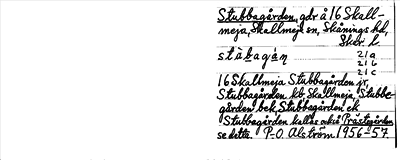 Stubbagården, gdr å 16 Skall-
meja, Skallmeja sn, Skånings hd,
Skar. l.
stùbagán
21a
21b
21c
16 Skallmeja Stubbagården jr,
Stubbagården kb, Skallmeja, Stubbe-
gården bek, Stubbagården ek
Stubbagården kallas också Prästgården
se detta. P-O. Alström 1956-57.